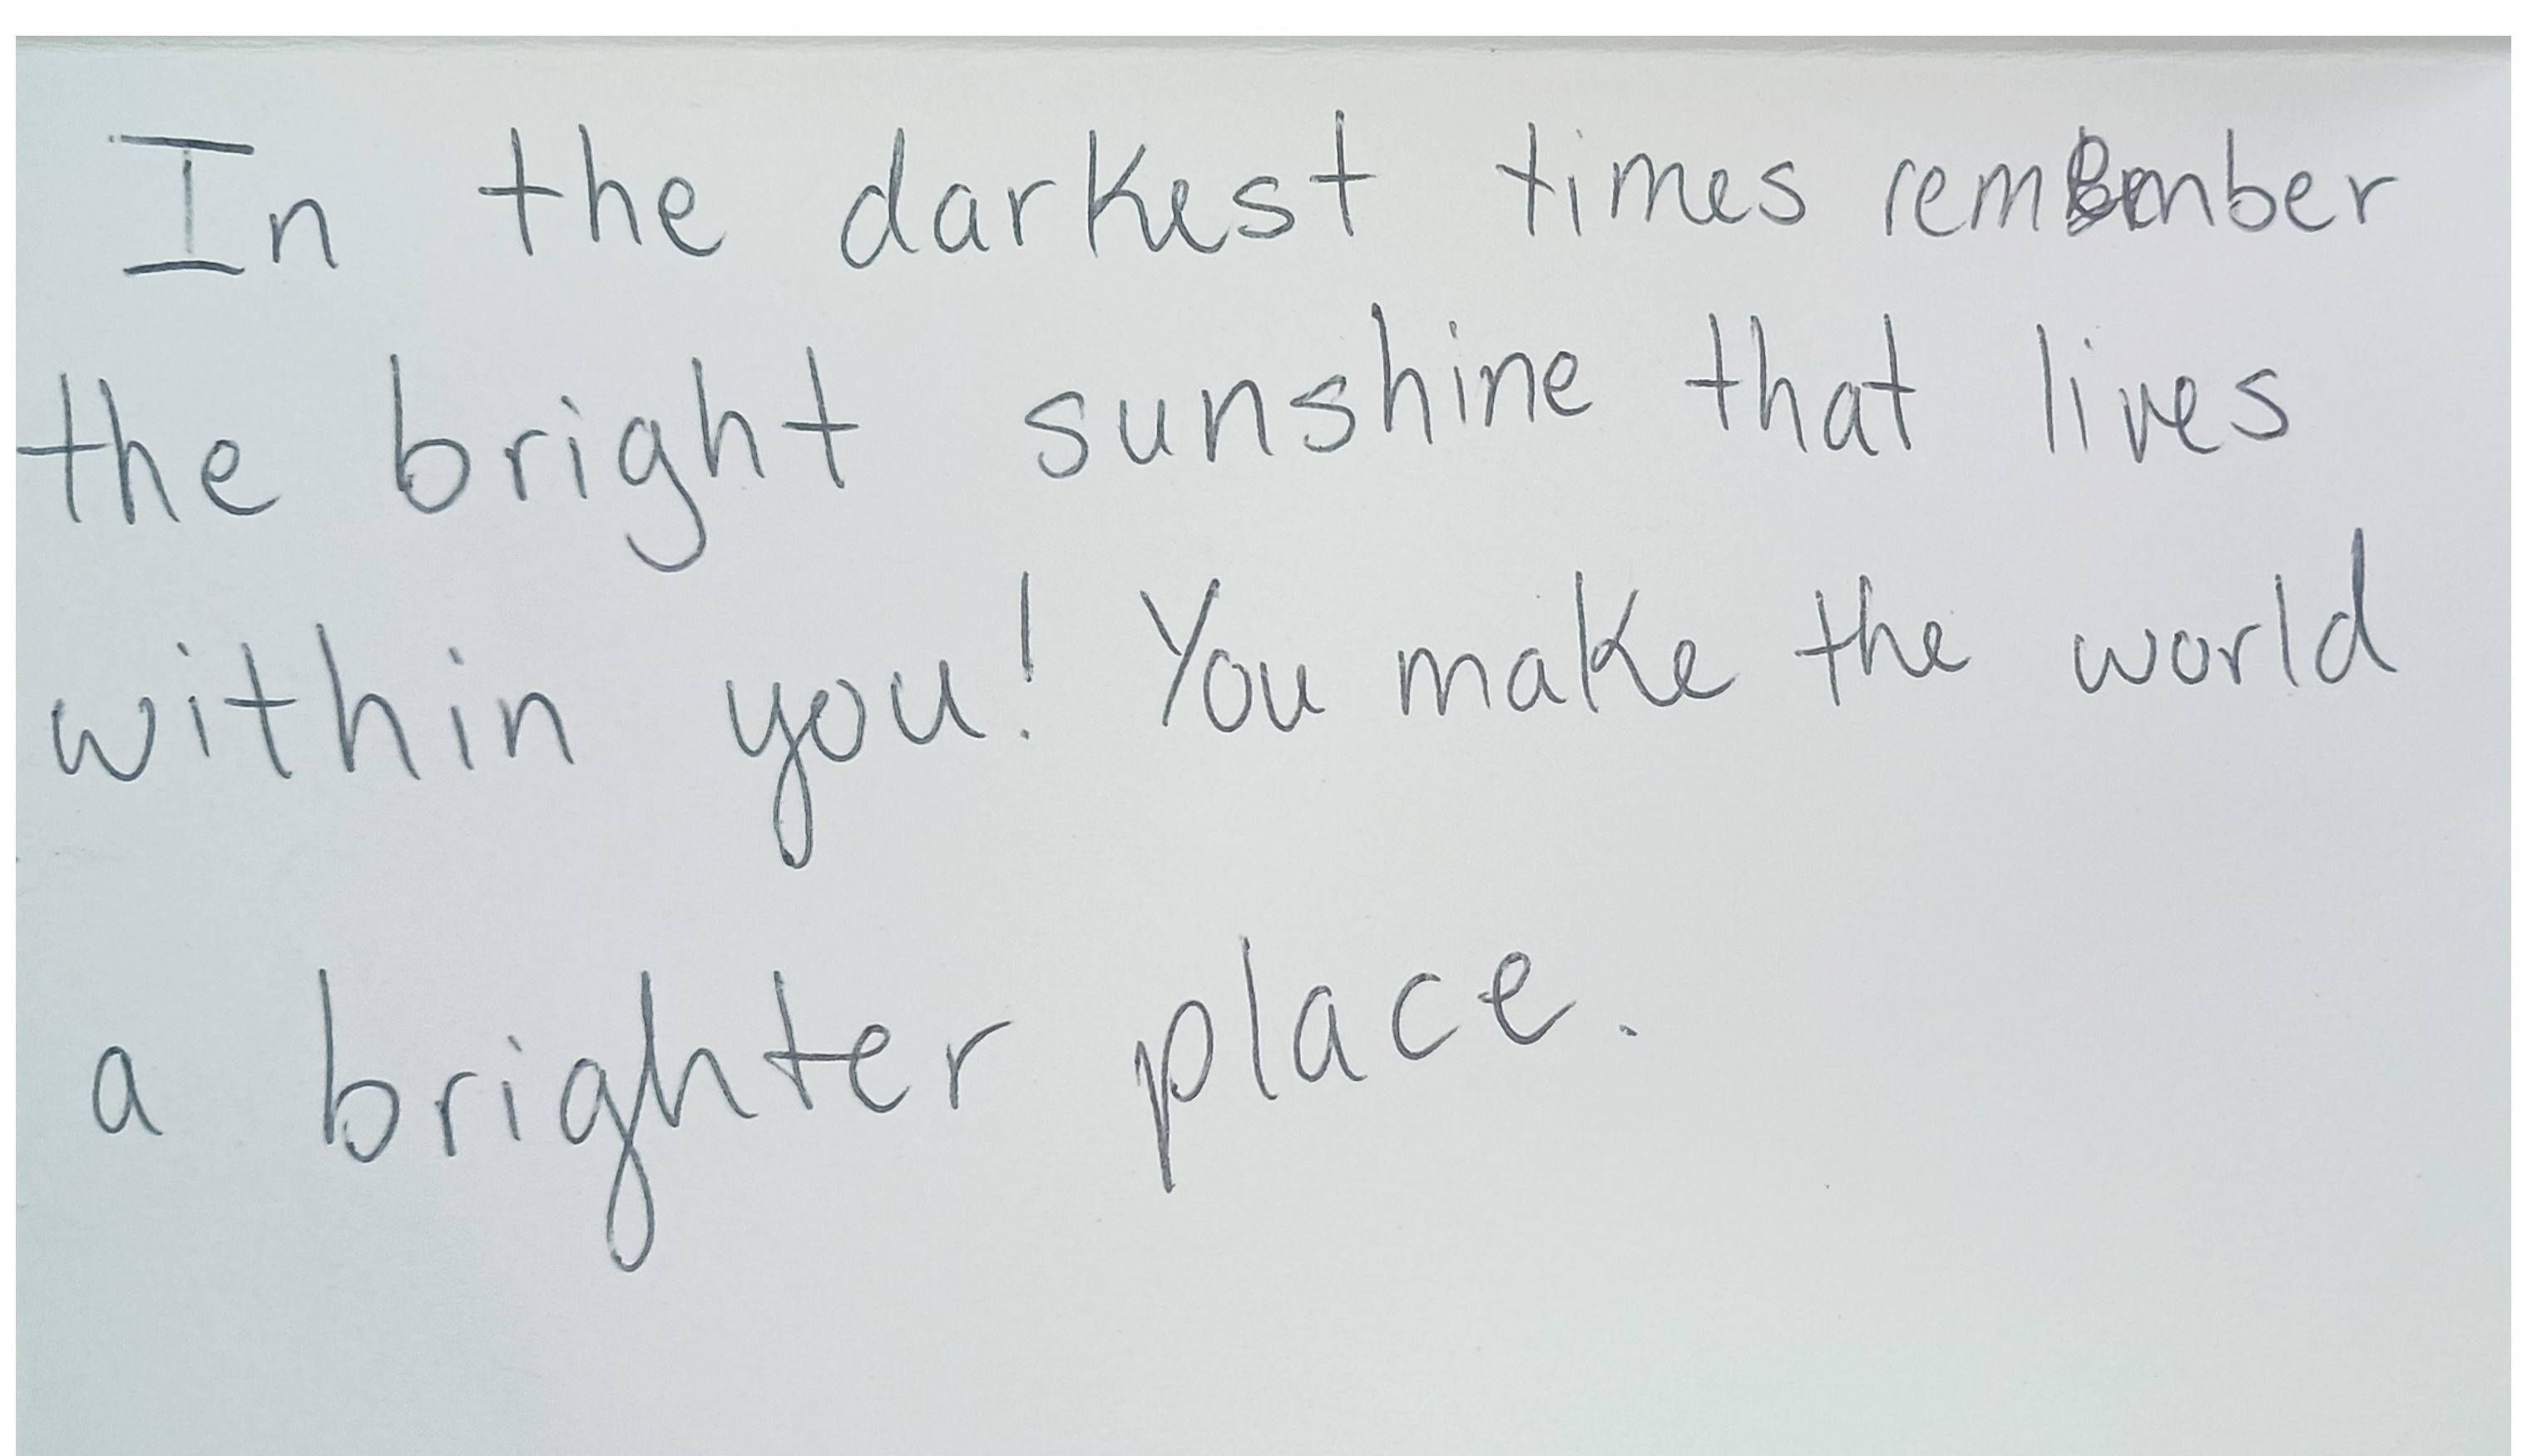 In the darkest times remember
the bright sunshine that lives
within you! You make the world
a brighter place.